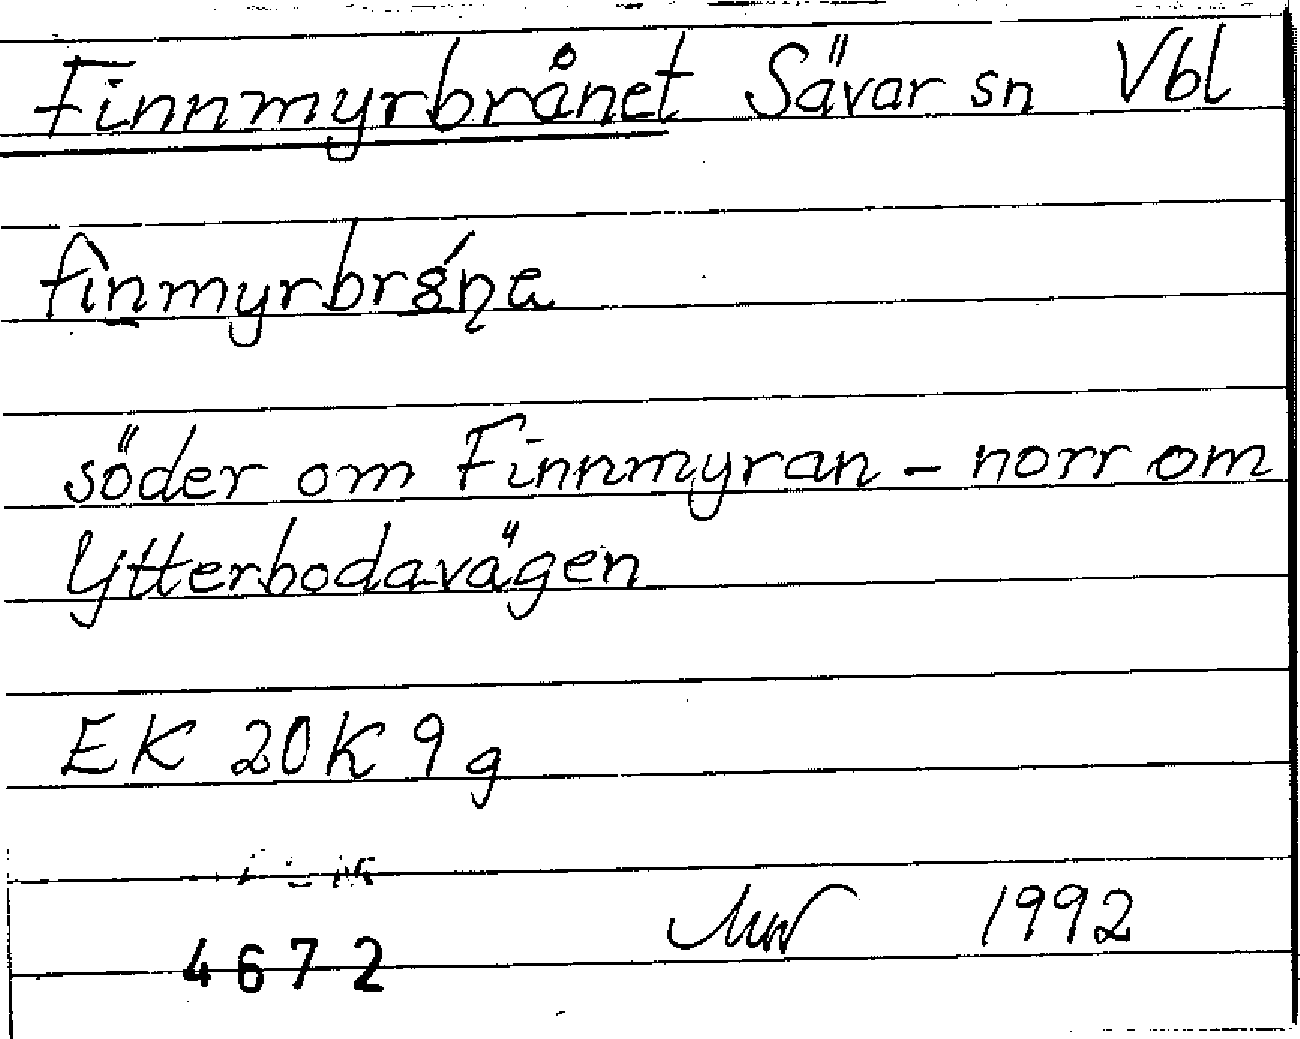 Finnmyrbrånet Sävar sn Vbl
söder om Finnmyran - norr om
Ytterbodavägen
EK 20K 9g
1992
4672